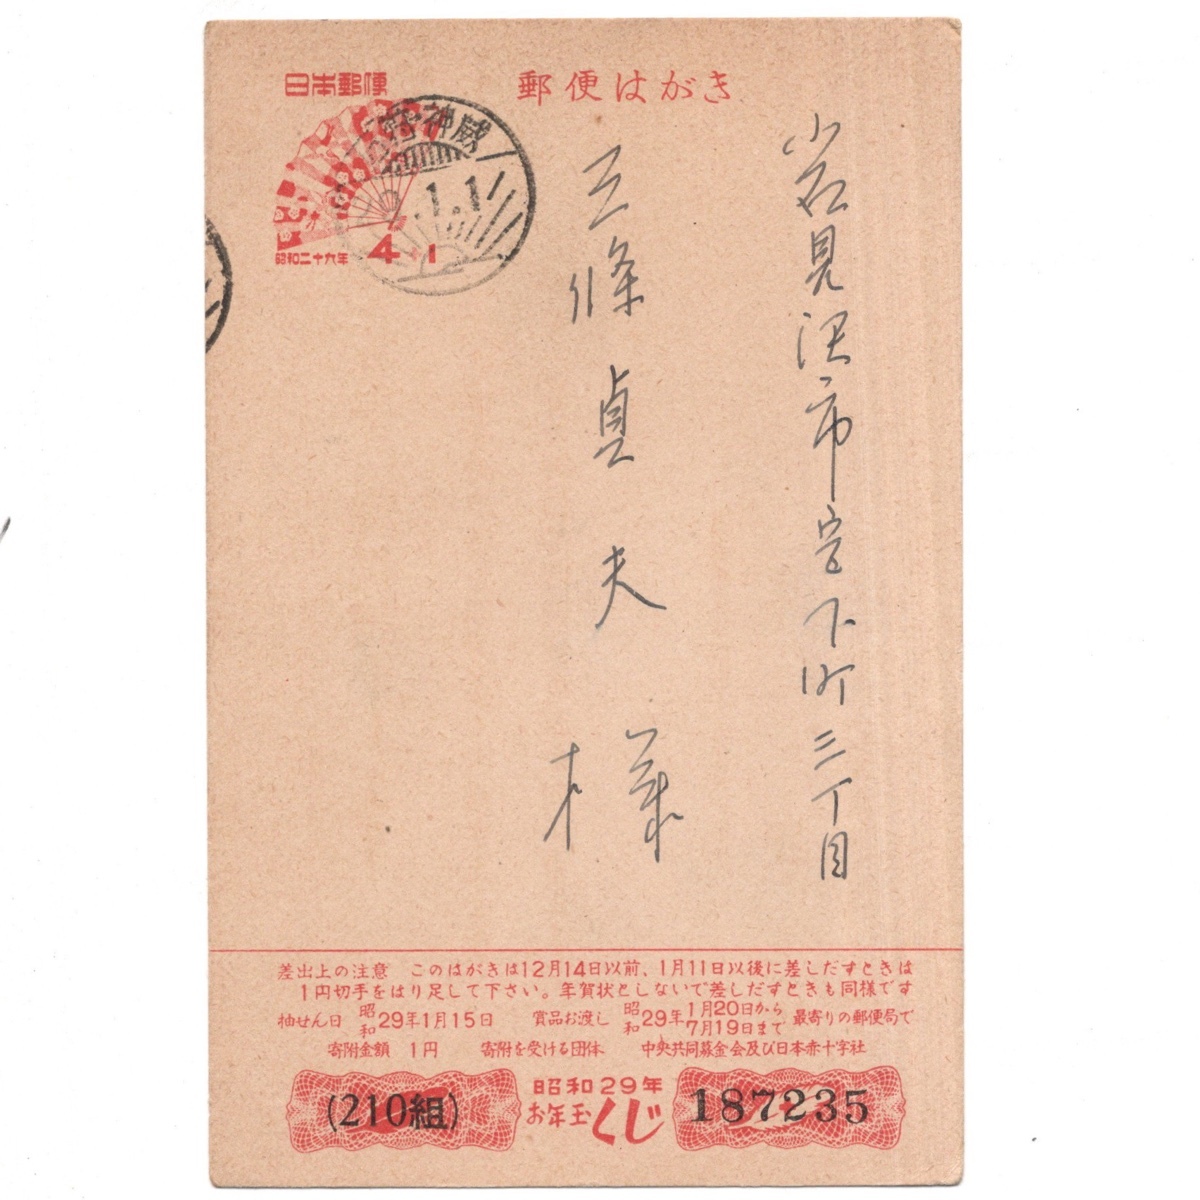 日本郵便
郵便はがき
神威
.1.1
4+1
昭和二十九年
岩見沢市宮下町三丁目
三條貞夫様
差出上の注意 このはがきは12月14日以前、1月11日以後に差しだすときは
1円切手をはり足して下さい。年賀状としないで差しだすときも同様です
抽せん日 昭和29年1月15日 賞品お渡し 昭和29年1月20日から7月19日まで 最寄りの郵便局で
寄附金額 1円 寄附を受ける団体 中央共同募金会及び日本赤十字社
(210組)
昭和29年
お年玉くじ
187235